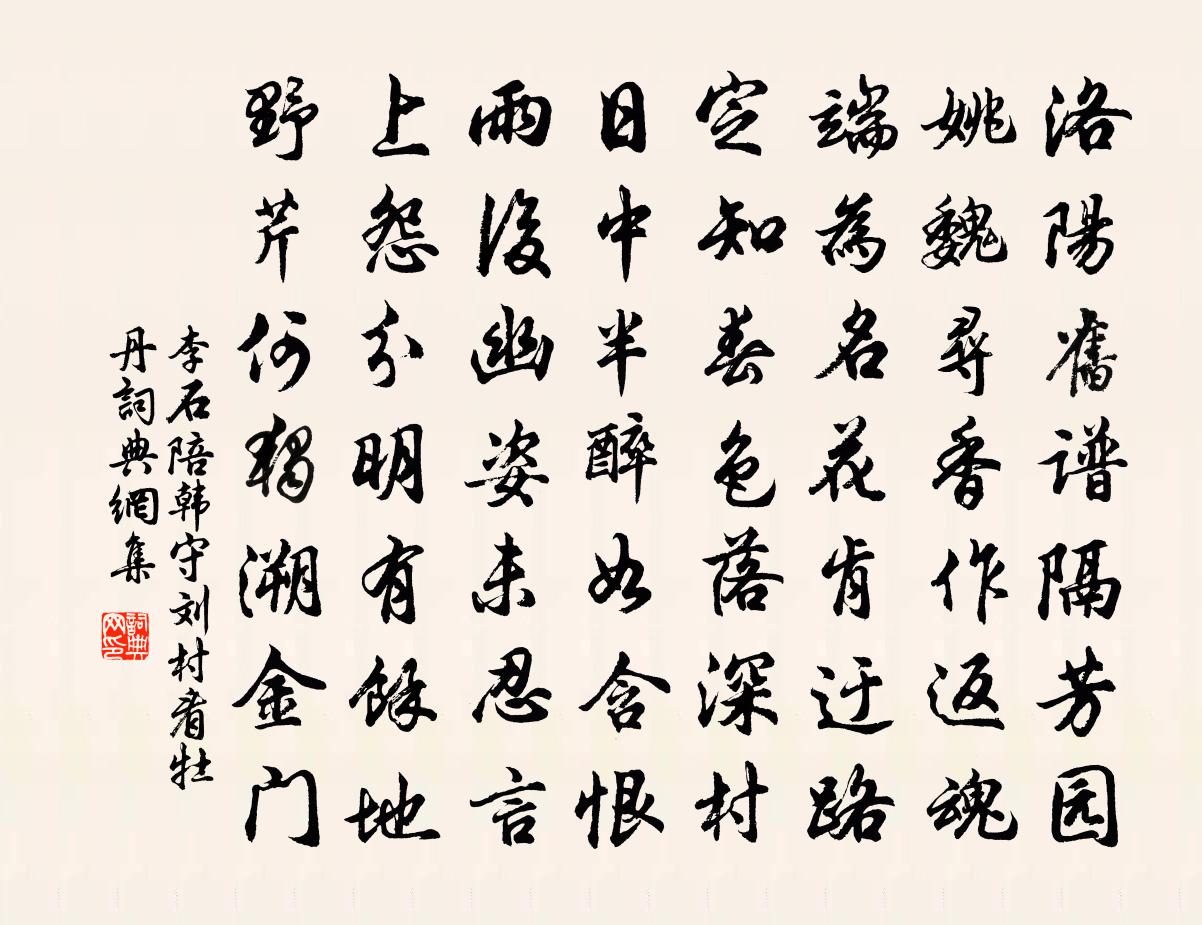 洛陽舊谱隔芳园
姚魏尋香作返魂
端為名花肯迂路
定知春色落深村
日中半醉如含恨
雨後幽姿未忍言
上怨分明有餘地
野芹何獨溯金门
李石陪韩守刘村看牡
丹詞典網集
詞典
网印